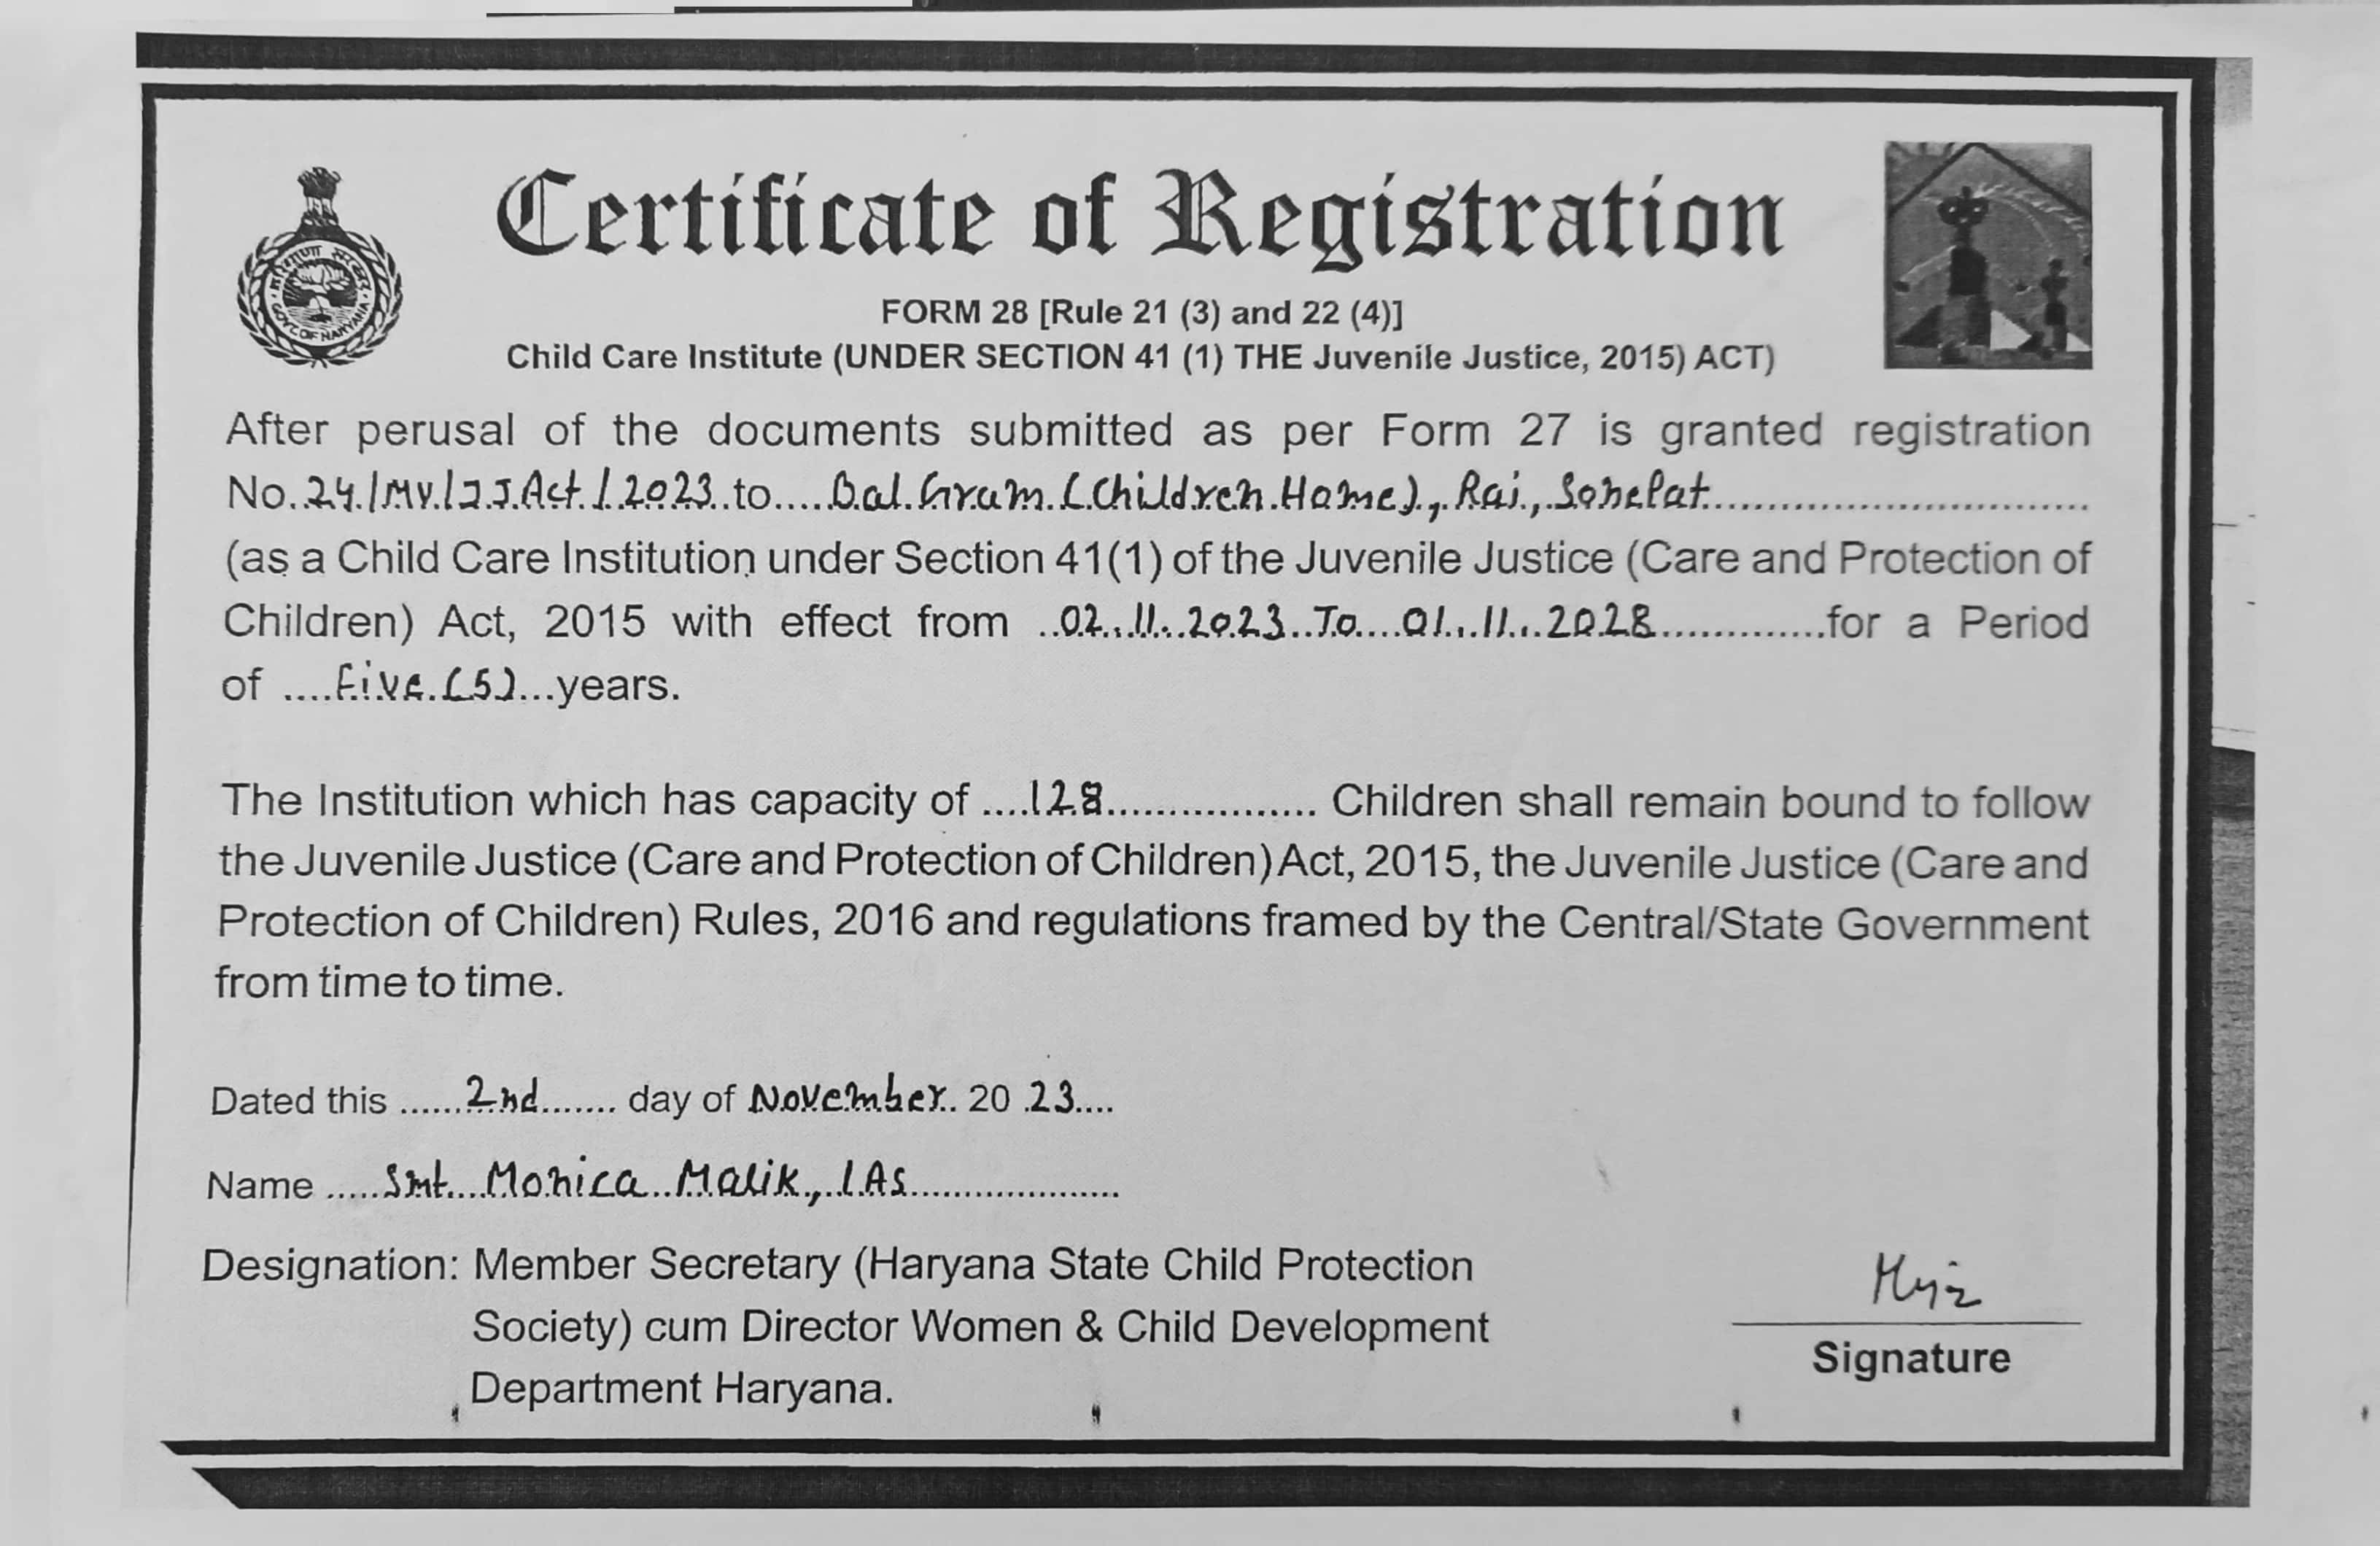 Certificate of Registration
FORM 28 [Rule 21 (3) and 22 (4)]
Child Care Institute (UNDER SECTION 41 (1) THE Juvenile Justice, 2015) ACT)
GOVT. OF HARYANA
After perusal of the documents submitted as per Form 27 is granted registration
No. 24/MV/JJ Act/2023 to Bal Gram (Children Home), Rai, Sonepat
(as a Child Care Institution under Section 41(1) of the Juvenile Justice (Care and Protection of
Children) Act, 2015 with effect from 02.11.2023 To 01.11.2028 for a Period
of Five (5) years.
The Institution which has capacity of 128 Children shall remain bound to follow
the Juvenile Justice (Care and Protection of Children) Act, 2015, the Juvenile Justice (Care and
Protection of Children) Rules, 2016 and regulations framed by the Central/State Government
from time to time.
Dated this 2nd day of November 20 23
Name Smt. Monica Malik, IAS
Designation: Member Secretary (Haryana State Child Protection
Society) cum Director Women & Child Development
Department Haryana.
Signature